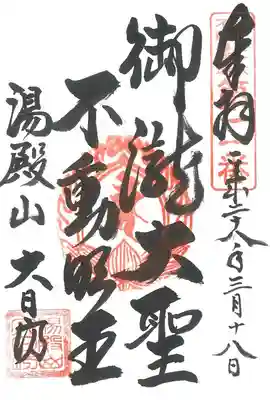 奉拝
平成二十八年三月十八日
御瀧大聖
不動明王
湯殿山 大日坊